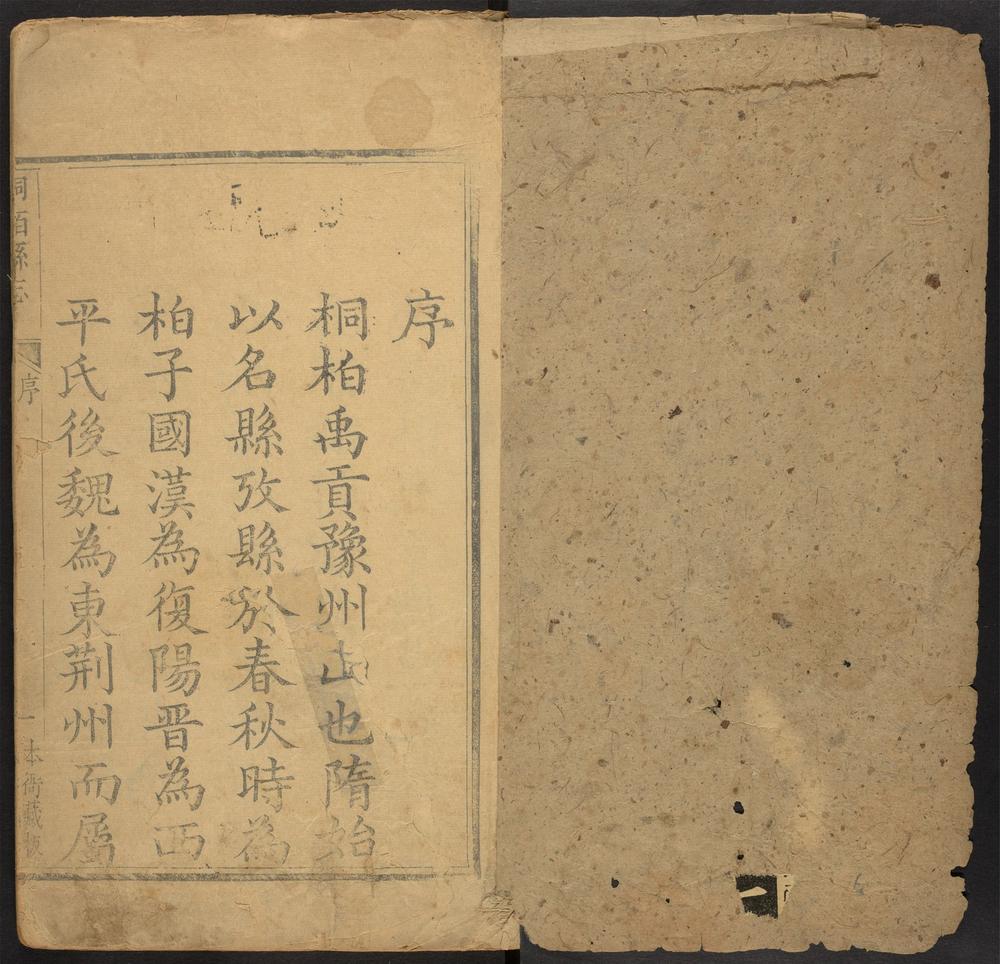 序
桐柏禹貢豫州山也隋始
以名縣攷縣於春秋時為
柏子國漢為復陽晋為西
平氏後魏為東荆州而屬
桐栢縣志
序
一
本衙藏板